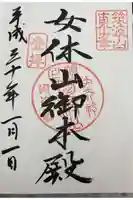 筑波山
女体山御本殿
平成三十年一月一日